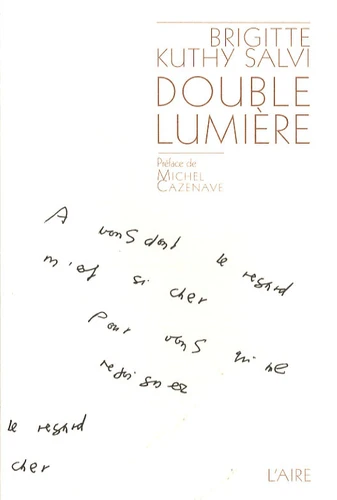 BRIGITTE
KUTHY SALVI
DOUBLE
LUMIÈRE
Préface de
MICHEL
CAZENAVE
A vous dont le regard
m'est si cher
pour vous qui me
rejoignez
le regard
cher
L'AIRE